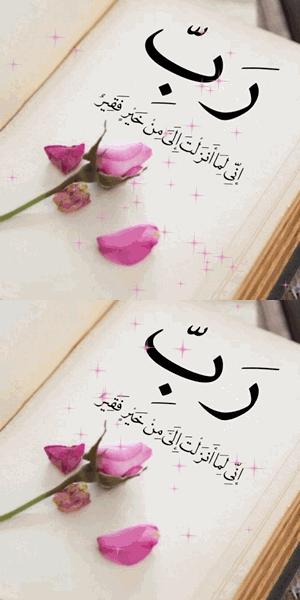 رَبِّ
إِنِّي لِمَا أَنزَلْتَ إِلَيَّ مِنْ خَيْرٍ فَقِيرٌ
رَبِّ
إِنِّي لِمَا أَنزَلْتَ إِلَيَّ مِنْ خَيْرٍ فَقِيرٌ